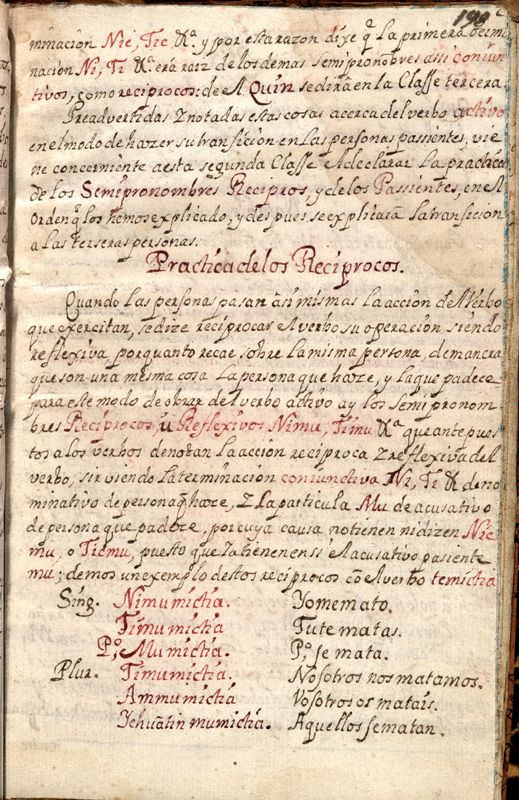 190
minacion Nic, Tic &ª. y por esta razon dixe q̃ la primera termi
nacion Ni, Ti &ª. era raiz de los demas semipronõbres assi coniun
tivos, como reciprocos: de el Quin se dira en la Classe tercera
Preadvertidas Z notadas estas cosas acerca del verbo activo
en el modo de hazer su transicion en las personas passientes, vie
ne concerniente a esta segunda Classe el declarar la practica
de los Semipronombres Recipros, y de los Passientes, en el
Orden q̃ los hemos explicado, y despues se explicara la transicion
a las terseras personas.
Practica de los Reciprocos.
Quando las personas pasan âsi mismas la accion de el verbo
que exercitan, se dize reciprocar el verbo su operacion siendo
reflexiva, por quanto recae sobre la misma persona, de manera
que son una misma cosa la persona que haze, y la que padece
para este modo de obrar del verbo activo ay los semipronom
bres Reciprocos, ù Reflexivos Nimu, Timu &ª. que ante pues
tos a los verbos denotan la accion reciproca Z reflexiva del
verbo, sirviendo la terminacion coniunctiva Ni, Ti &. de no
minativo de persona q̃ haze, Z la particula Mu de acusativo
de persona que padeze, por cuya causa no tienen ni dizen Nic
mu, o Ticmu, puesto que Ya tienen en si el acusativo pasiente
mu; demos un exemplo destos reciprocos cõ el verbo temictia
Sing. Nimumictia. Yo me mato.
Timumictia Tu te matas.
Pº. Mumictia. Pº. se mata.
Plur. Timumictia. Nosotros nos matamos.
Ammumictia Vosotros os matais.
Yehuãtin mumictia. Aquellos se matan.